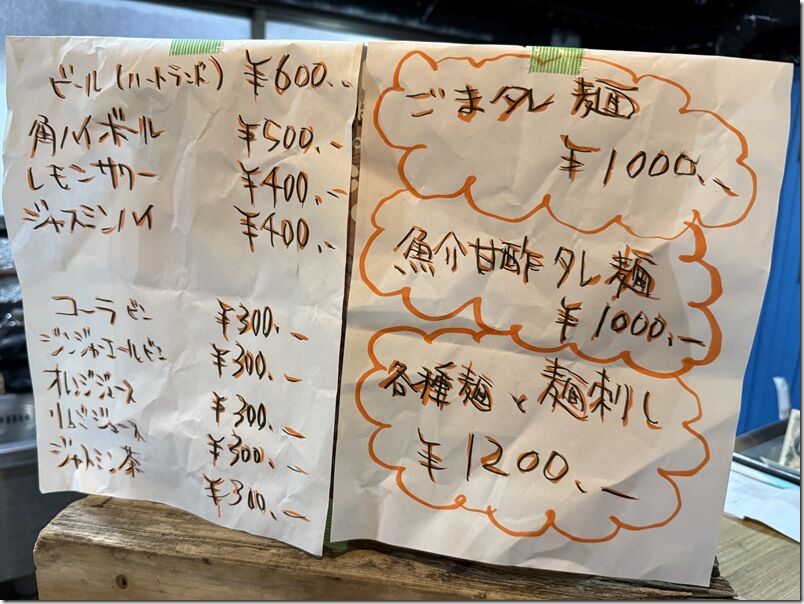 ビール(ハートランド) ¥600.-
角ハイボール ¥500.-
レモンサワー ¥400.-
ジャスミンハイ ¥400.-
コーラ ビン ¥300.-
ジンジャエール ビン ¥300.-
オレンジジュース ¥300.-
リンゴジュース ¥300.-
ジャスミン茶 ¥300.-
ごまタレ 麺
¥1000.-
魚介甘酢タレ麺
¥1000.-
各種麺と麺刺し
¥1200.-